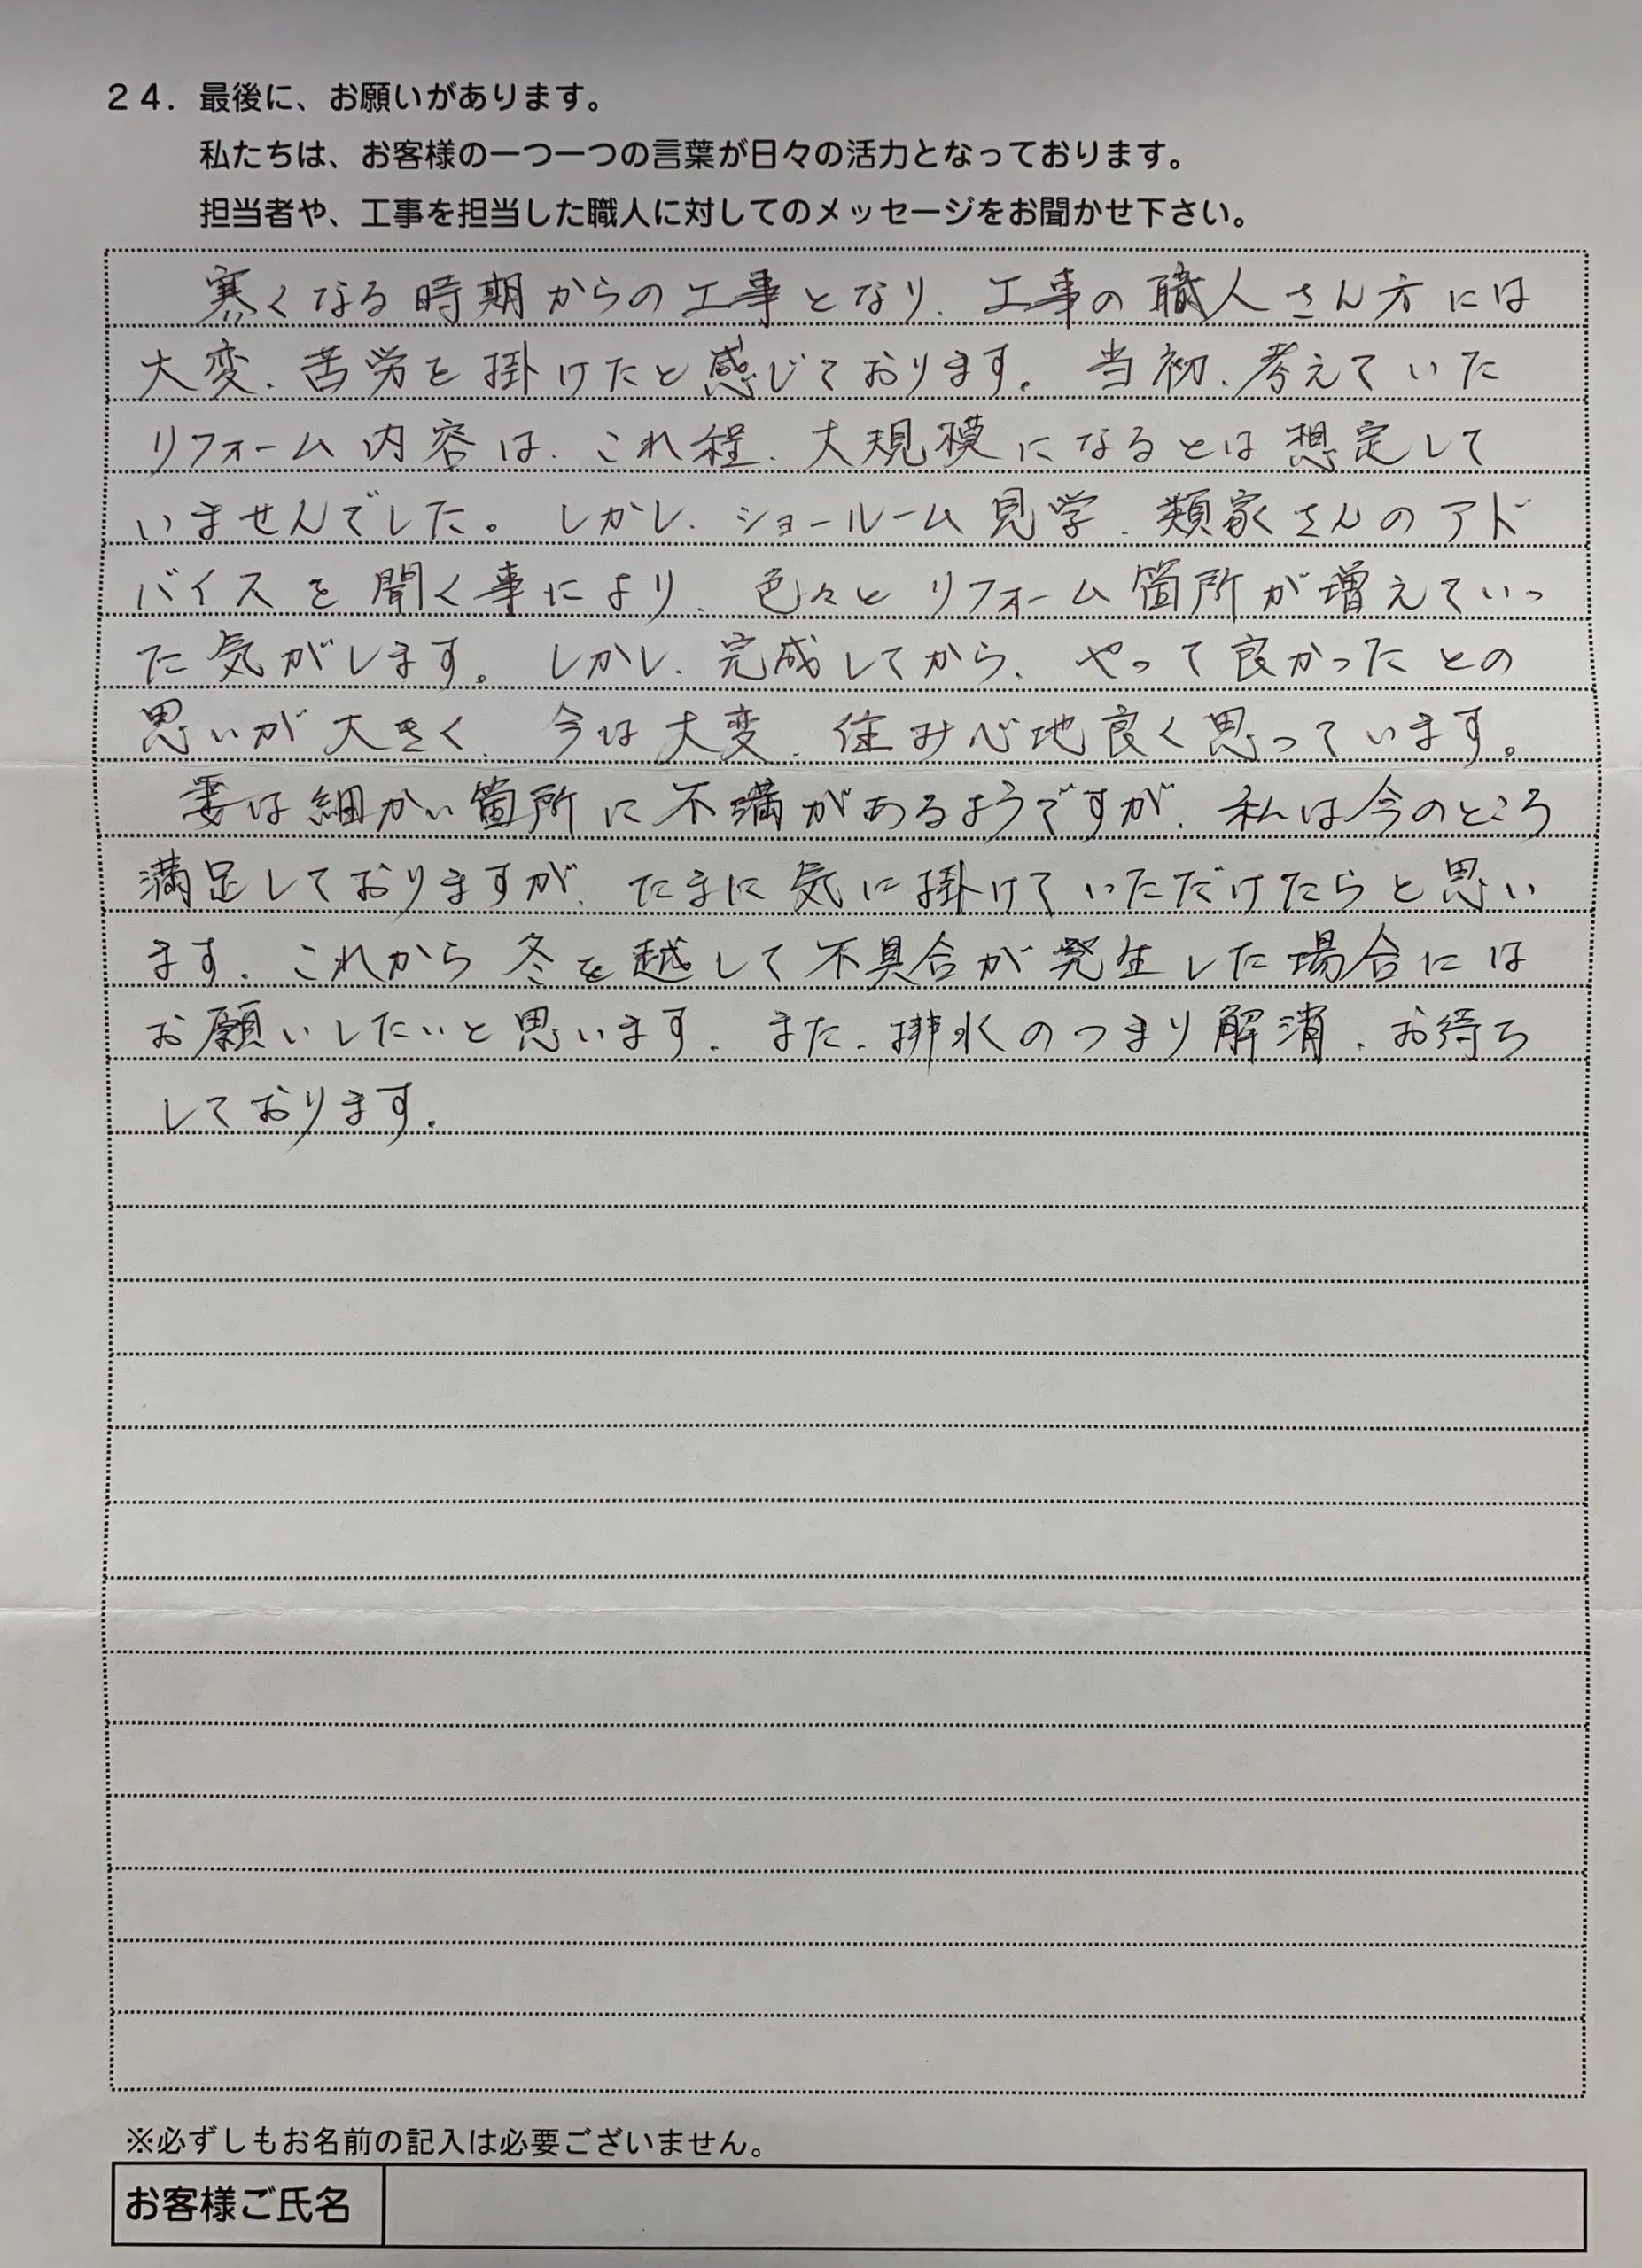 24. 最後に、お願いがあります。
私たちは、お客様の一つ一つの言葉が日々の活力となっております。
担当者や、工事を担当した職人に対してのメッセージをお聞かせ下さい。
寒くなる時期からの工事となり、工事の職人さん方には
大変、苦労を掛けたと感じております。当初、考えていた
リフォーム内容は、これ程、大規模になるとは想定して
いませんでした。しかし、ショールーム見学、類家さんのアド
バイスを聞く事により、色々とリフォーム箇所が増えていっ
た気がします。しかし、完成してから、やって良かったとの
思いが大きく、今は大変、住み心地良く思っています。
妻は細かい箇所に不満があるようですが、私は今のところ
満足しておりますが、たまに気に掛けていただけたらと思い
ます。これから冬を越して不具合が発生した場合には
お願いしたいと思います。また、排水のつまり解消、お待ち
しております。
※必ずしもお名前の記入は必要ございません。
お客様ご氏名